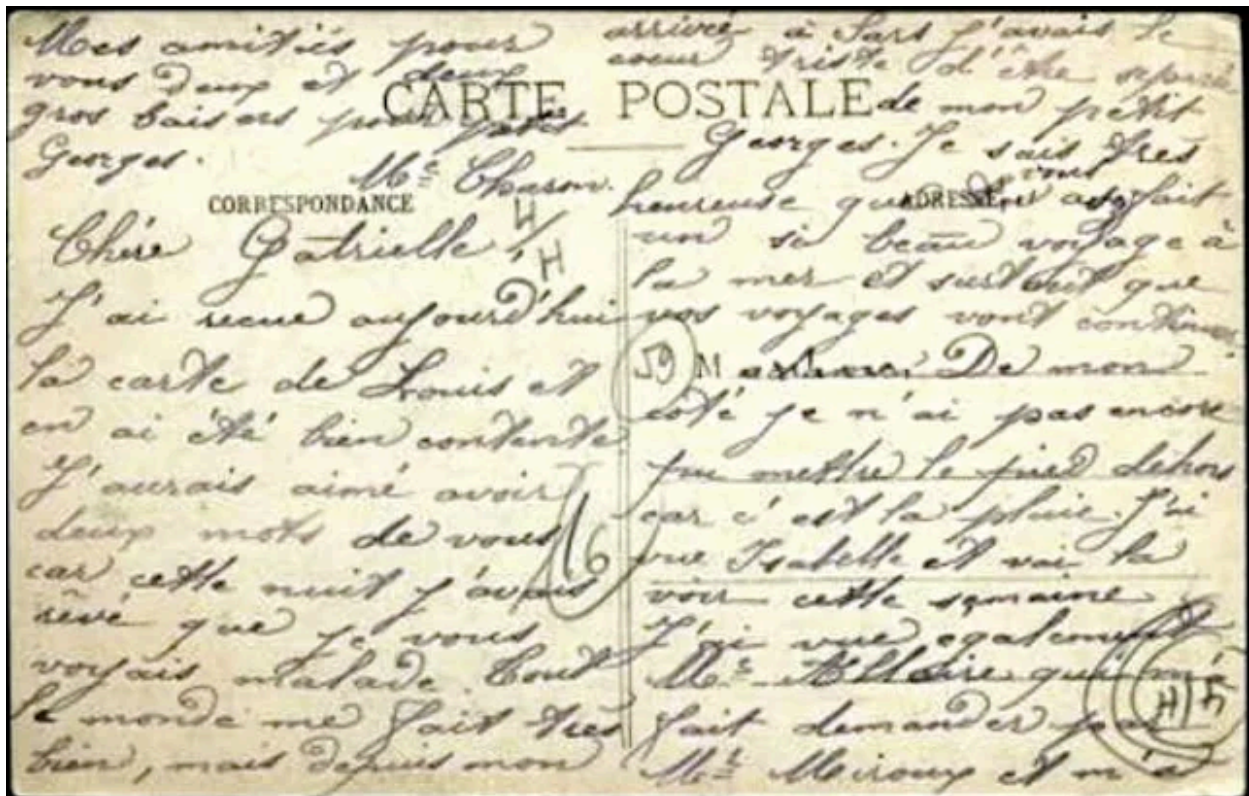 Mes amitiés pour
vous deux et deux
gros baisers pour petit
Georges.
Me Charon.
CARTE POSTALE
CORRESPONDANCE
4/
H
Chère Gabrielle,
J'ai recue aujourd'hui
la carte de Louis et
en ai été bien contente
J'aurais aimé avoir
deux mots de vous
car cette nuit j'avais
rêvé que je vous
voyais malade. Tout
le monde me fait très
bien, mais depuis mon
16
arrivée à Sars j'avais le
coeur triste d'être séparée
de mon petit
Georges. Je suis très
vous
ADRESSE
heureuse que ayez fait
un si beau voyage à
la mer et surtout que
vos voyages vont continuer
59 M De mon
côté je n'ai pas encore
pu mettre le pied dehors
car c'est la pluie. J'ai
vue Isabelle et vai la
voir cette semaine
J'ai vue également
Me qui m'a
fait demander par
Mr Miroux et m'a
H 5